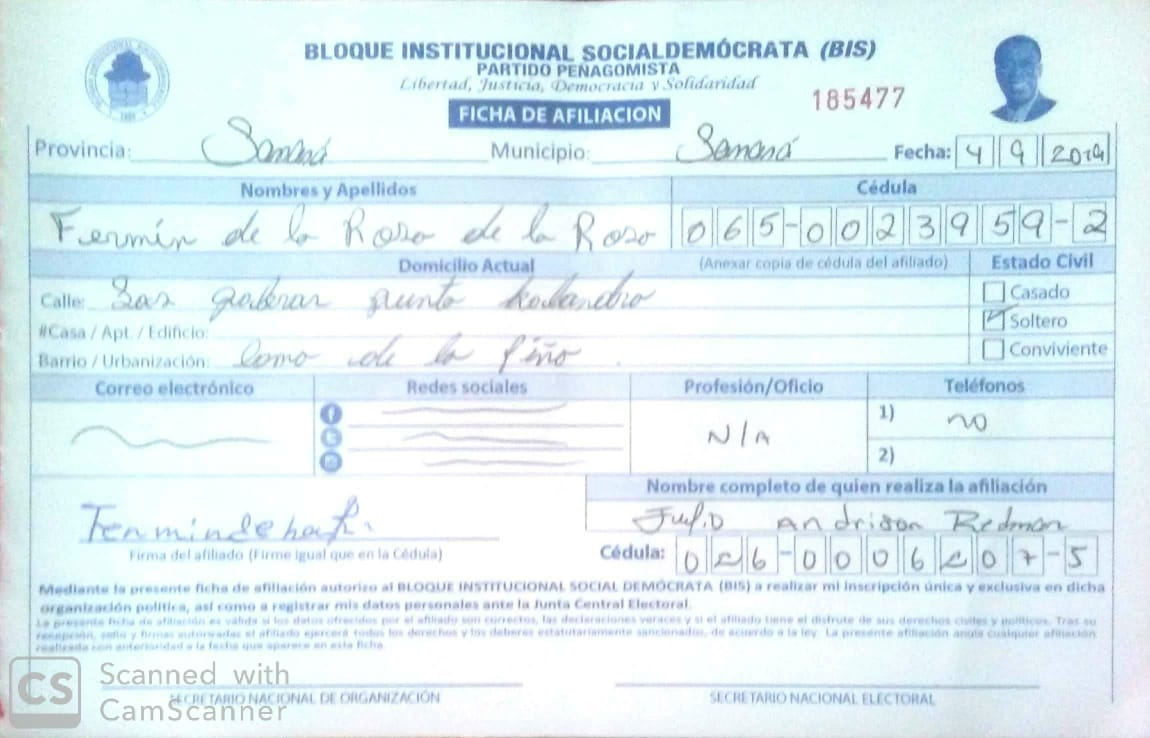 BLOQUE INSTITUCIONAL SOCIALDEMÓCRATA (BIS)
PARTIDO PEÑAGOMISTA
Libertad, Justicia, Democracia y Solidaridad
185477
FICHA DE AFILIACION
Provincia: Samaná Municipio: Samaná Fecha: 4 9 2019
Nombres y Apellidos Cédula
Fermín de la Rosa de la Rosa 065-0023959-2
Domicilio Actual (Anexar copia de cédula del afiliado) Estado Civil
Calle: Las galeras punta
Casado
#Casa / Apt. / Edificio:
Soltero
Barrio / Urbanización: Loma de la Piña
Conviviente
Correo electrónico Redes sociales Profesión/Oficio Teléfonos
1) no
N/A
2)
Nombre completo de quien realiza la afiliación
Julio Andrison Redman
Firma del afiliado (Firme igual que en la Cédula)
Cédula: 026-0006207-5
Mediante la presente ficha de afiliación autorizo al BLOQUE INSTITUCIONAL SOCIAL DEMÓCRATA (BIS) a realizar mi inscripción única y exclusiva en dicha
organización política, así como a registrar mis datos personales ante la Junta Central Electoral.
La presente ficha de afiliación es válida si los datos ofrecidos por el afiliado son correctos, las declaraciones veraces y si el afiliado tiene el disfrute de sus derechos civiles y políticos. Tras su
recepción, sello y firmas autorizadas el afiliado ejercerá todos los derechos y los deberes estatutariamente sancionados, de acuerdo a la ley. La presente afiliación anula cualquier afiliación
realizada con anterioridad a la fecha que aparece en esta ficha.
SECRETARIO NACIONAL DE ORGANIZACIÓN SECRETARIO NACIONAL ELECTORAL
CS Scanned with
CamScanner